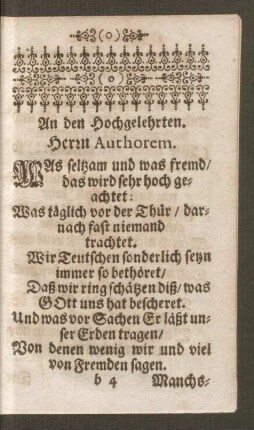 (o)
(o)
An den Hochgelehrten.
Herrn Authorem.
WAs seltzam und was fremd/
das wird sehr hoch ge-
achtet:
Was täglich vor der Thür / dar-
nach fast niemand
trachtet.
Wir Teutschen sonderlich seyn
immer so bethöret/
Daß wir ring schätzen diß/ was
GOtt uns hat bescheret.
Und was vor Sachen Er läßt un-
ser Erden tragen/
Von denen wenig wir und viel
von Fremden sagen.
b 4 Manchs-